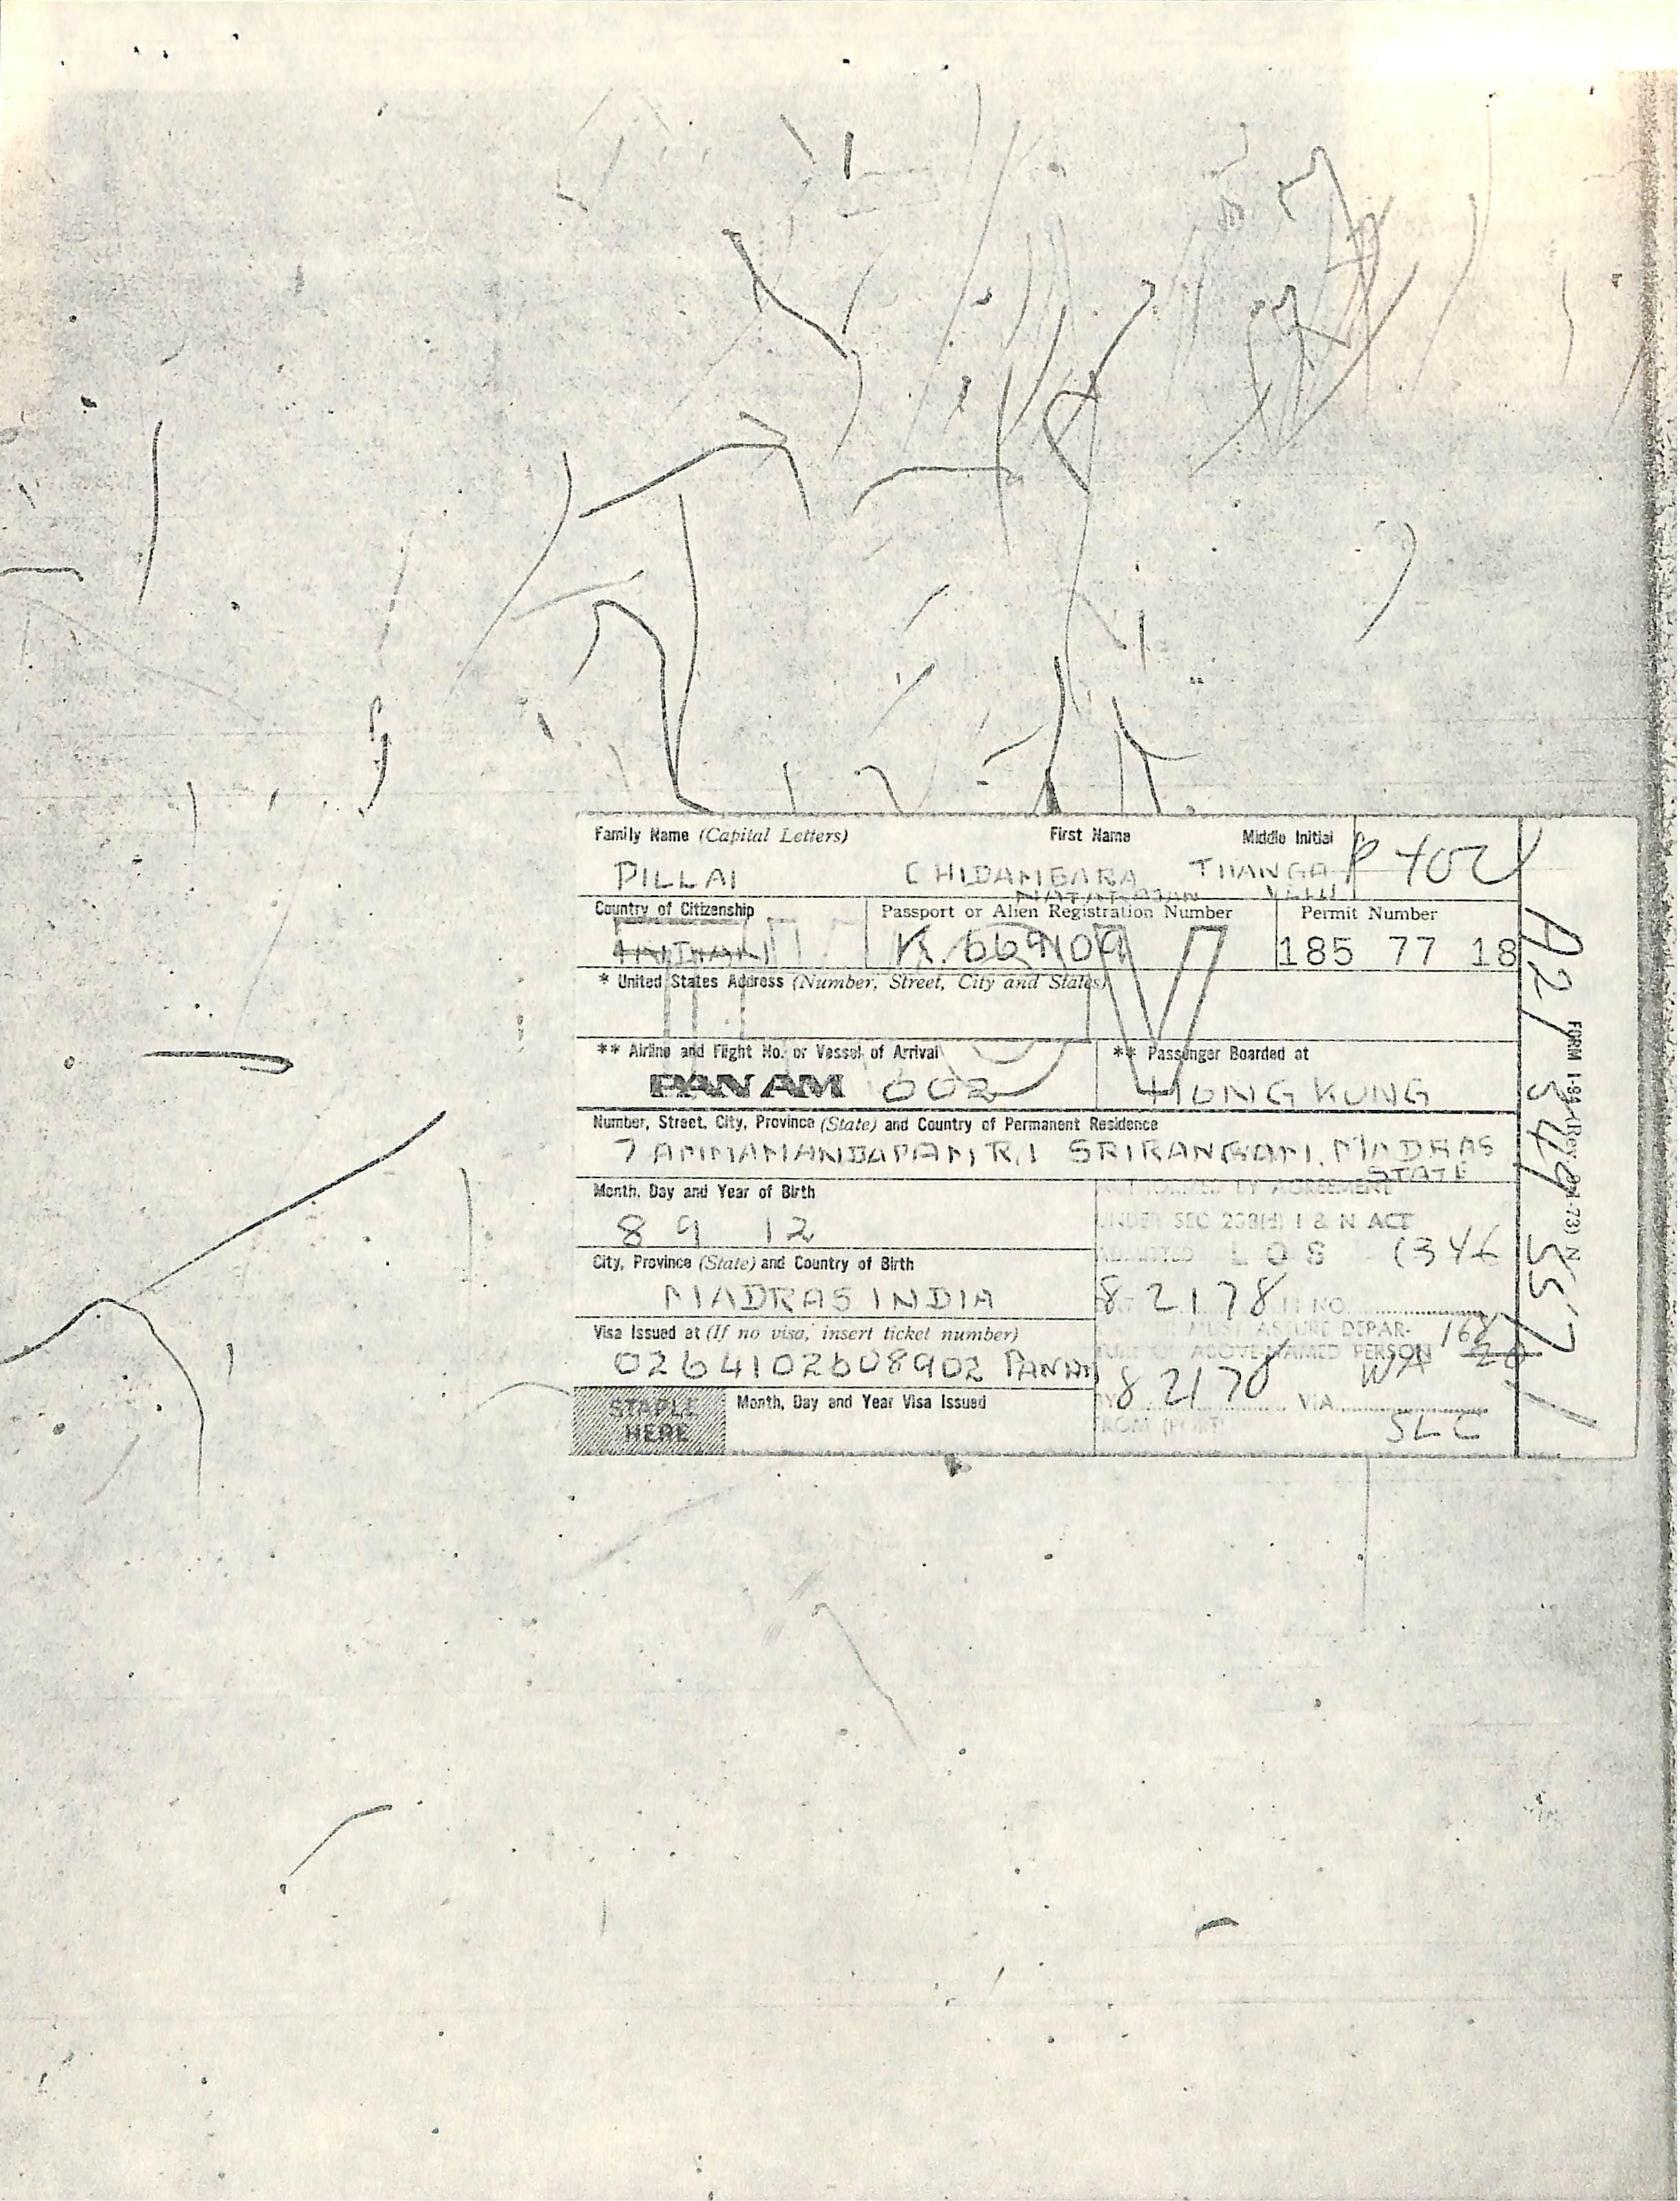 Family Name (Capital Letters) First Name Middle Initial
PILLAI CHIDAMBARA THANGA P 402
NATARAJAN VELU
Country of Citizenship Passport or Alien Registration Number Permit Number
INDIAN K. 669109 185 77 18
* United States Address (Number, Street, City and States)
** Airline and Flight No. or Vessel of Arrival ** Passenger Boarded at
PAN AM 002 HONG KONG
Number, Street, City, Province (State) and Country of Permanent Residence
7 AMMAMANDAPAM R.I SRIRANGAM. MADRAS
STATE
Month, Day and Year of Birth
BY AGREEMENT
8 9 12
UNDER SEC 238(d) I & N ACT
City, Province (State) and Country of Birth
ADMITTED L O S (346
MADRAS INDIA
8 21 78 H NO.
Visa Issued at (If no visa, insert ticket number)
MUST ASSURE DEPAR- 168
TURE OF ABOVE-NAMED PERSON
0264102608902 PANAM
WA 20
8 21 78 VIA
STAPLE HERE
Month, Day and Year Visa Issued
FROM (PORT) SLC
FORM I-94 (Rev. 73) N
A21 349 557